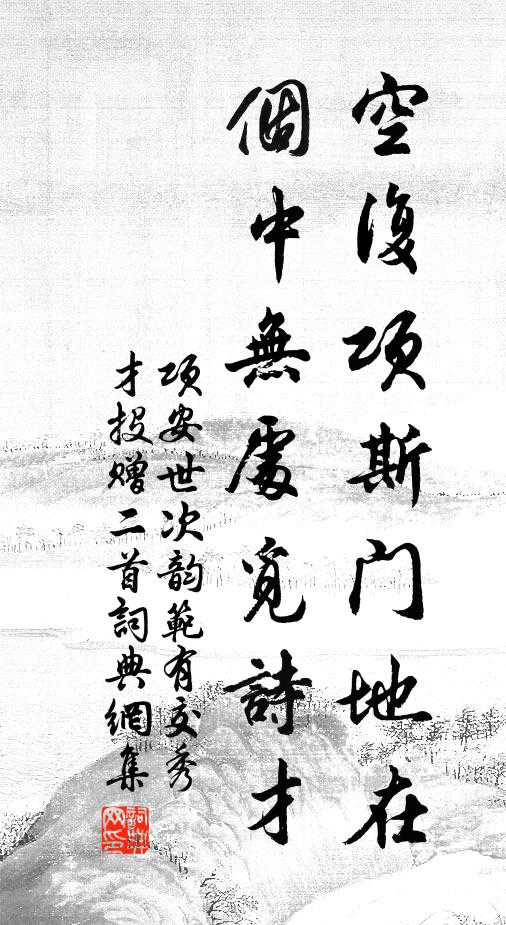 空復項斯門地在
個中無處覓詩才
項安世次韵範有交秀
才投贈二首詞典網集